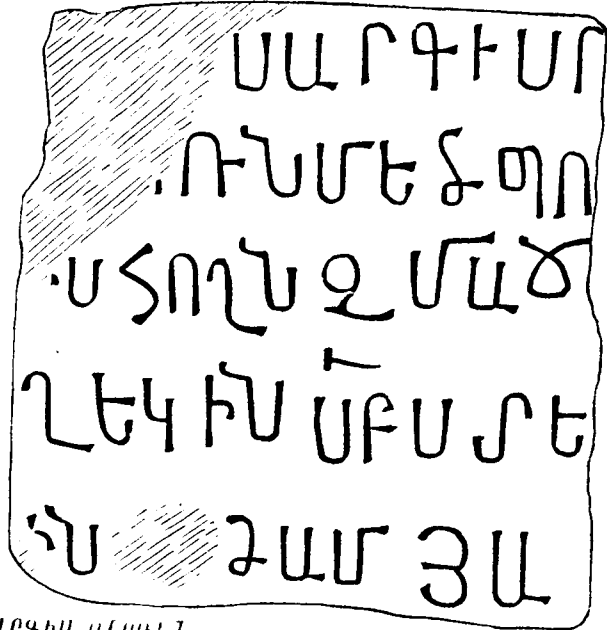 ՍԱՐԳԻՍՐ
ՌՆՄԵԾՊՈ
ՍՀՈՂՆՋՄԱՃ
ՂԵԿԻՆՍԲՍՏԵ
Ն ՁԱՄՅԱ